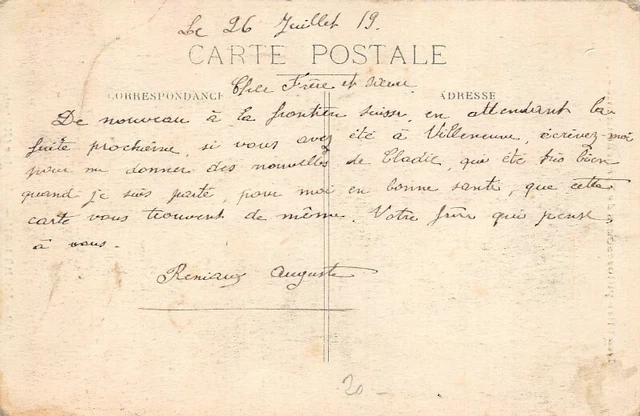 Le 26 Juillet 19.
CARTE POSTALE
Cher Frère et sœur
CORRESPONDANCE ADRESSE
De nouveau à la frontière suisse, en attendant la
fuite prochème, si vous avez été à Villeneuve, écrivez-moi
pour me donner des nouvelles de Eladie, qui été très bien
quand je suis parte, pour moi en bonne santé, que cette
carte vous trouvent de même. Votre frère qui pense
à vous.
Auguste
20